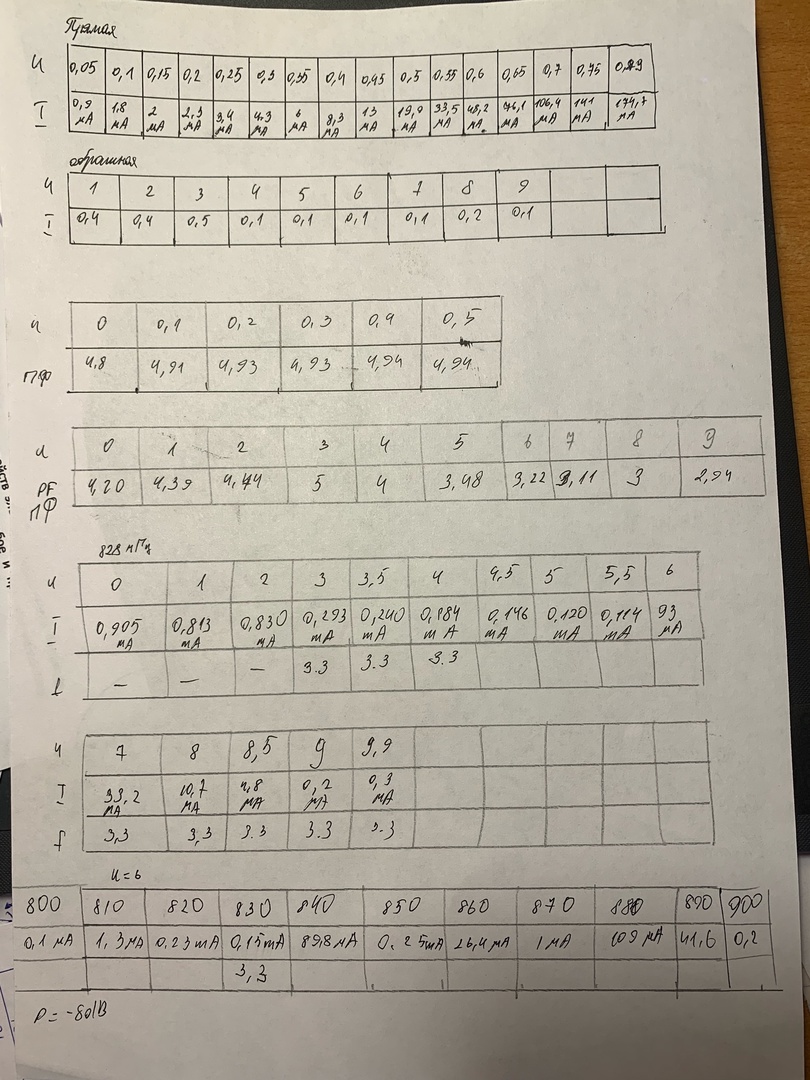 Прямая
U 0,05 0,1 0,15 0,2 0,25 0,3 0,35 0,4 0,45 0,5 0,55 0,6 0,65 0,7 0,75 0,79
I 0,9 мА 1,8 мА 2 мА 2,3 мА 3,4 мА 4,3 мА 6 мА 8,3 мА 13 мА 19,9 мА 33,5 мА 48,2 мА 76,1 мА 106,4 мА 141 мА 174,7 мА
обратная
U 1 2 3 4 5 6 7 8 9
I 0,4 0,4 0,5 0,1 0,1 0,1 0,1 0,2 0,1
U 0 0,1 0,2 0,3 0,4 0,5
ПФ 4,8 4,91 4,93 4,93 4,94 4,94
U 0 1 2 3 4 5 6 7 8 9
PF 4,20 4,39 4,44 5 4 3,48 3,22 3,11 3 2,94
ПФ
828 мГц
U 0 1 2 3 3,5 4 4,5 5 5,5 6
I 0,905 mA 0,813 mA 0,830 mA 0,293 mA 0,240 mA 0,184 mA 0,146 mA 0,120 mA 0,114 mA 93 мА
f — — — 3.3 3.3 3.3
U 7 8 8,5 9 9,9
I 33,2 мА 10,7 мА 4,8 мА 0,2 мА 0,3 мА
f 3,3 3,3 3.3 3.3 3.3
U=6
800 810 820 830 840 850 860 870 880 890 900
0,1 мА 1,3 мА 0,23 mA 0,15 mA 89,8 мА 0.25 mA 26,4 мА 1 мА 109 мА 41,6 0,2
3,3
P = -80 dB